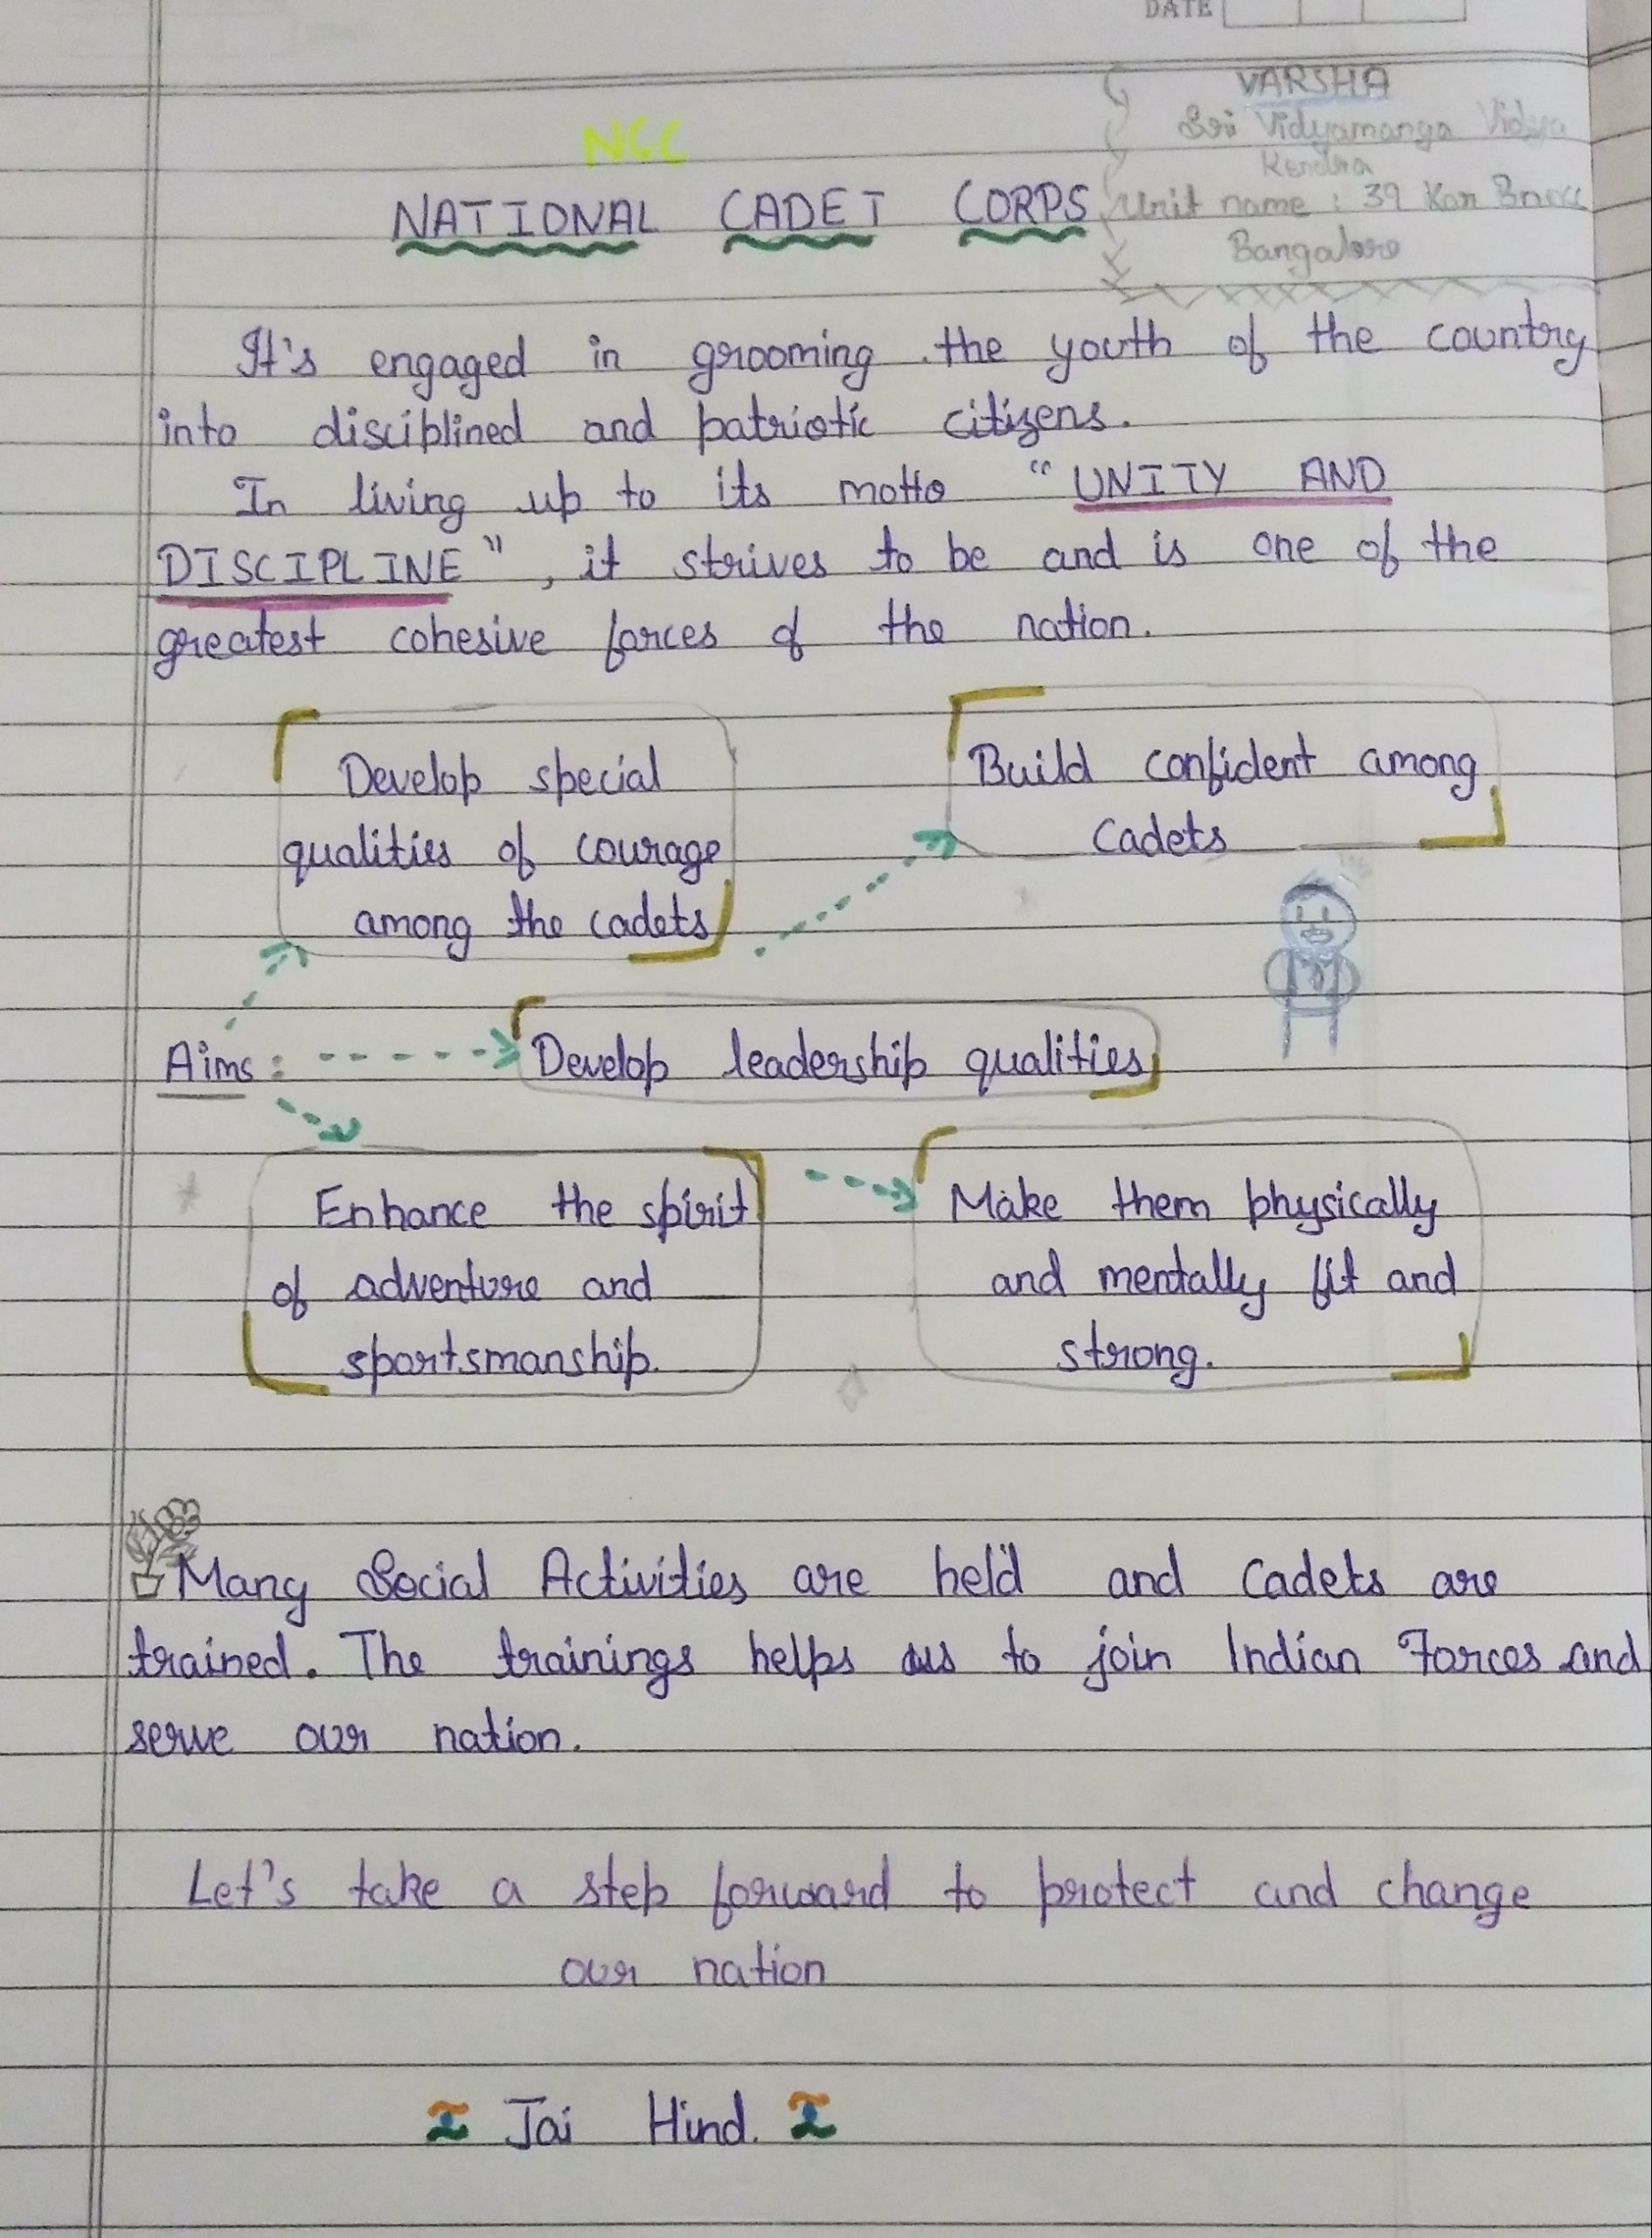 DATE
VARSHA
Sri Vidyamanga Vidya
Kendra
Unit name : 39 Kar
Bangalore
NCC
NATIONAL CADET CORPS
It's engaged in grooming the youth of the country
into disciplined and patriotic citizens.
In living up to its motto "UNITY AND
DISCIPLINE", it strives to be and is one of the
greatest cohesive forces of the nation.
Develop special
qualities of courage
among the cadets
Build confident among
Cadets
Aims :
Develop leadership qualities
Enhance the spirit
of adventure and
sportsmanship.
Make them physically
and mentally fit and
strong.
Many Social Activities are held and Cadets are
trained. The trainings helps us to join Indian Forces and
serve our nation.
Let's take a step forward to protect and change
our nation
Jai Hind.